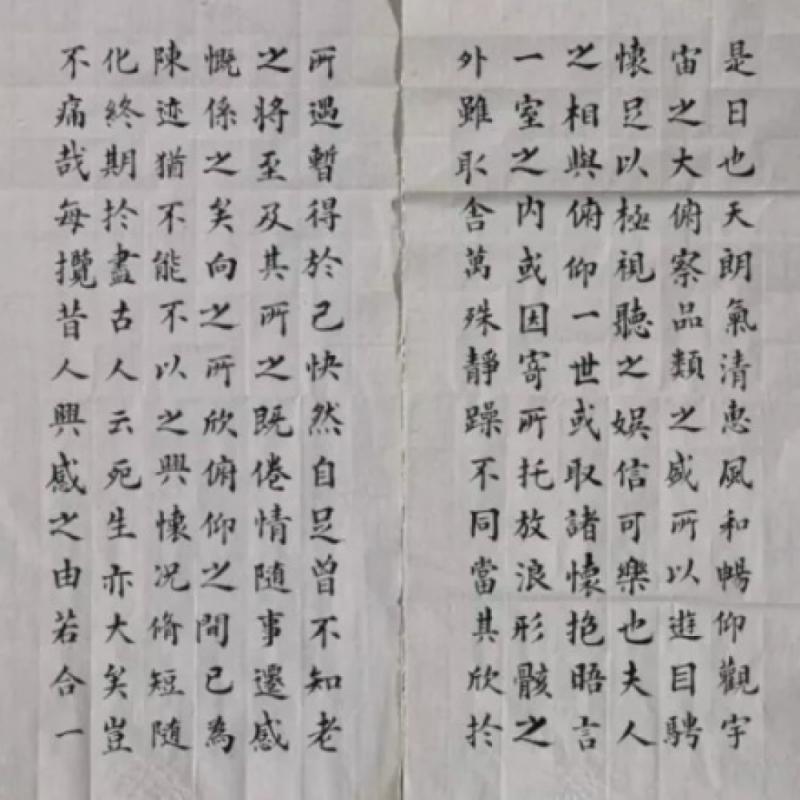 是日也天朗氣清惠風和暢仰觀宇
宙之大俯察品類之盛所以遊目騁
懷足以極視聽之娛信可樂也夫人
之相與俯仰一世或取諸懷抱晤言
一室之內或因寄所托放浪形骸之
外雖取舍萬殊靜躁不同當其欣於
所遇暫得於己快然自足曾不知老
之將至及其所之既倦情隨事遷感
慨係之矣向之所欣俯仰之間已為
陳迹猶不能不以之興懷况脩短隨
化終期於盡古人云死生亦大矣豈
不痛哉每攬昔人興感之由若合一